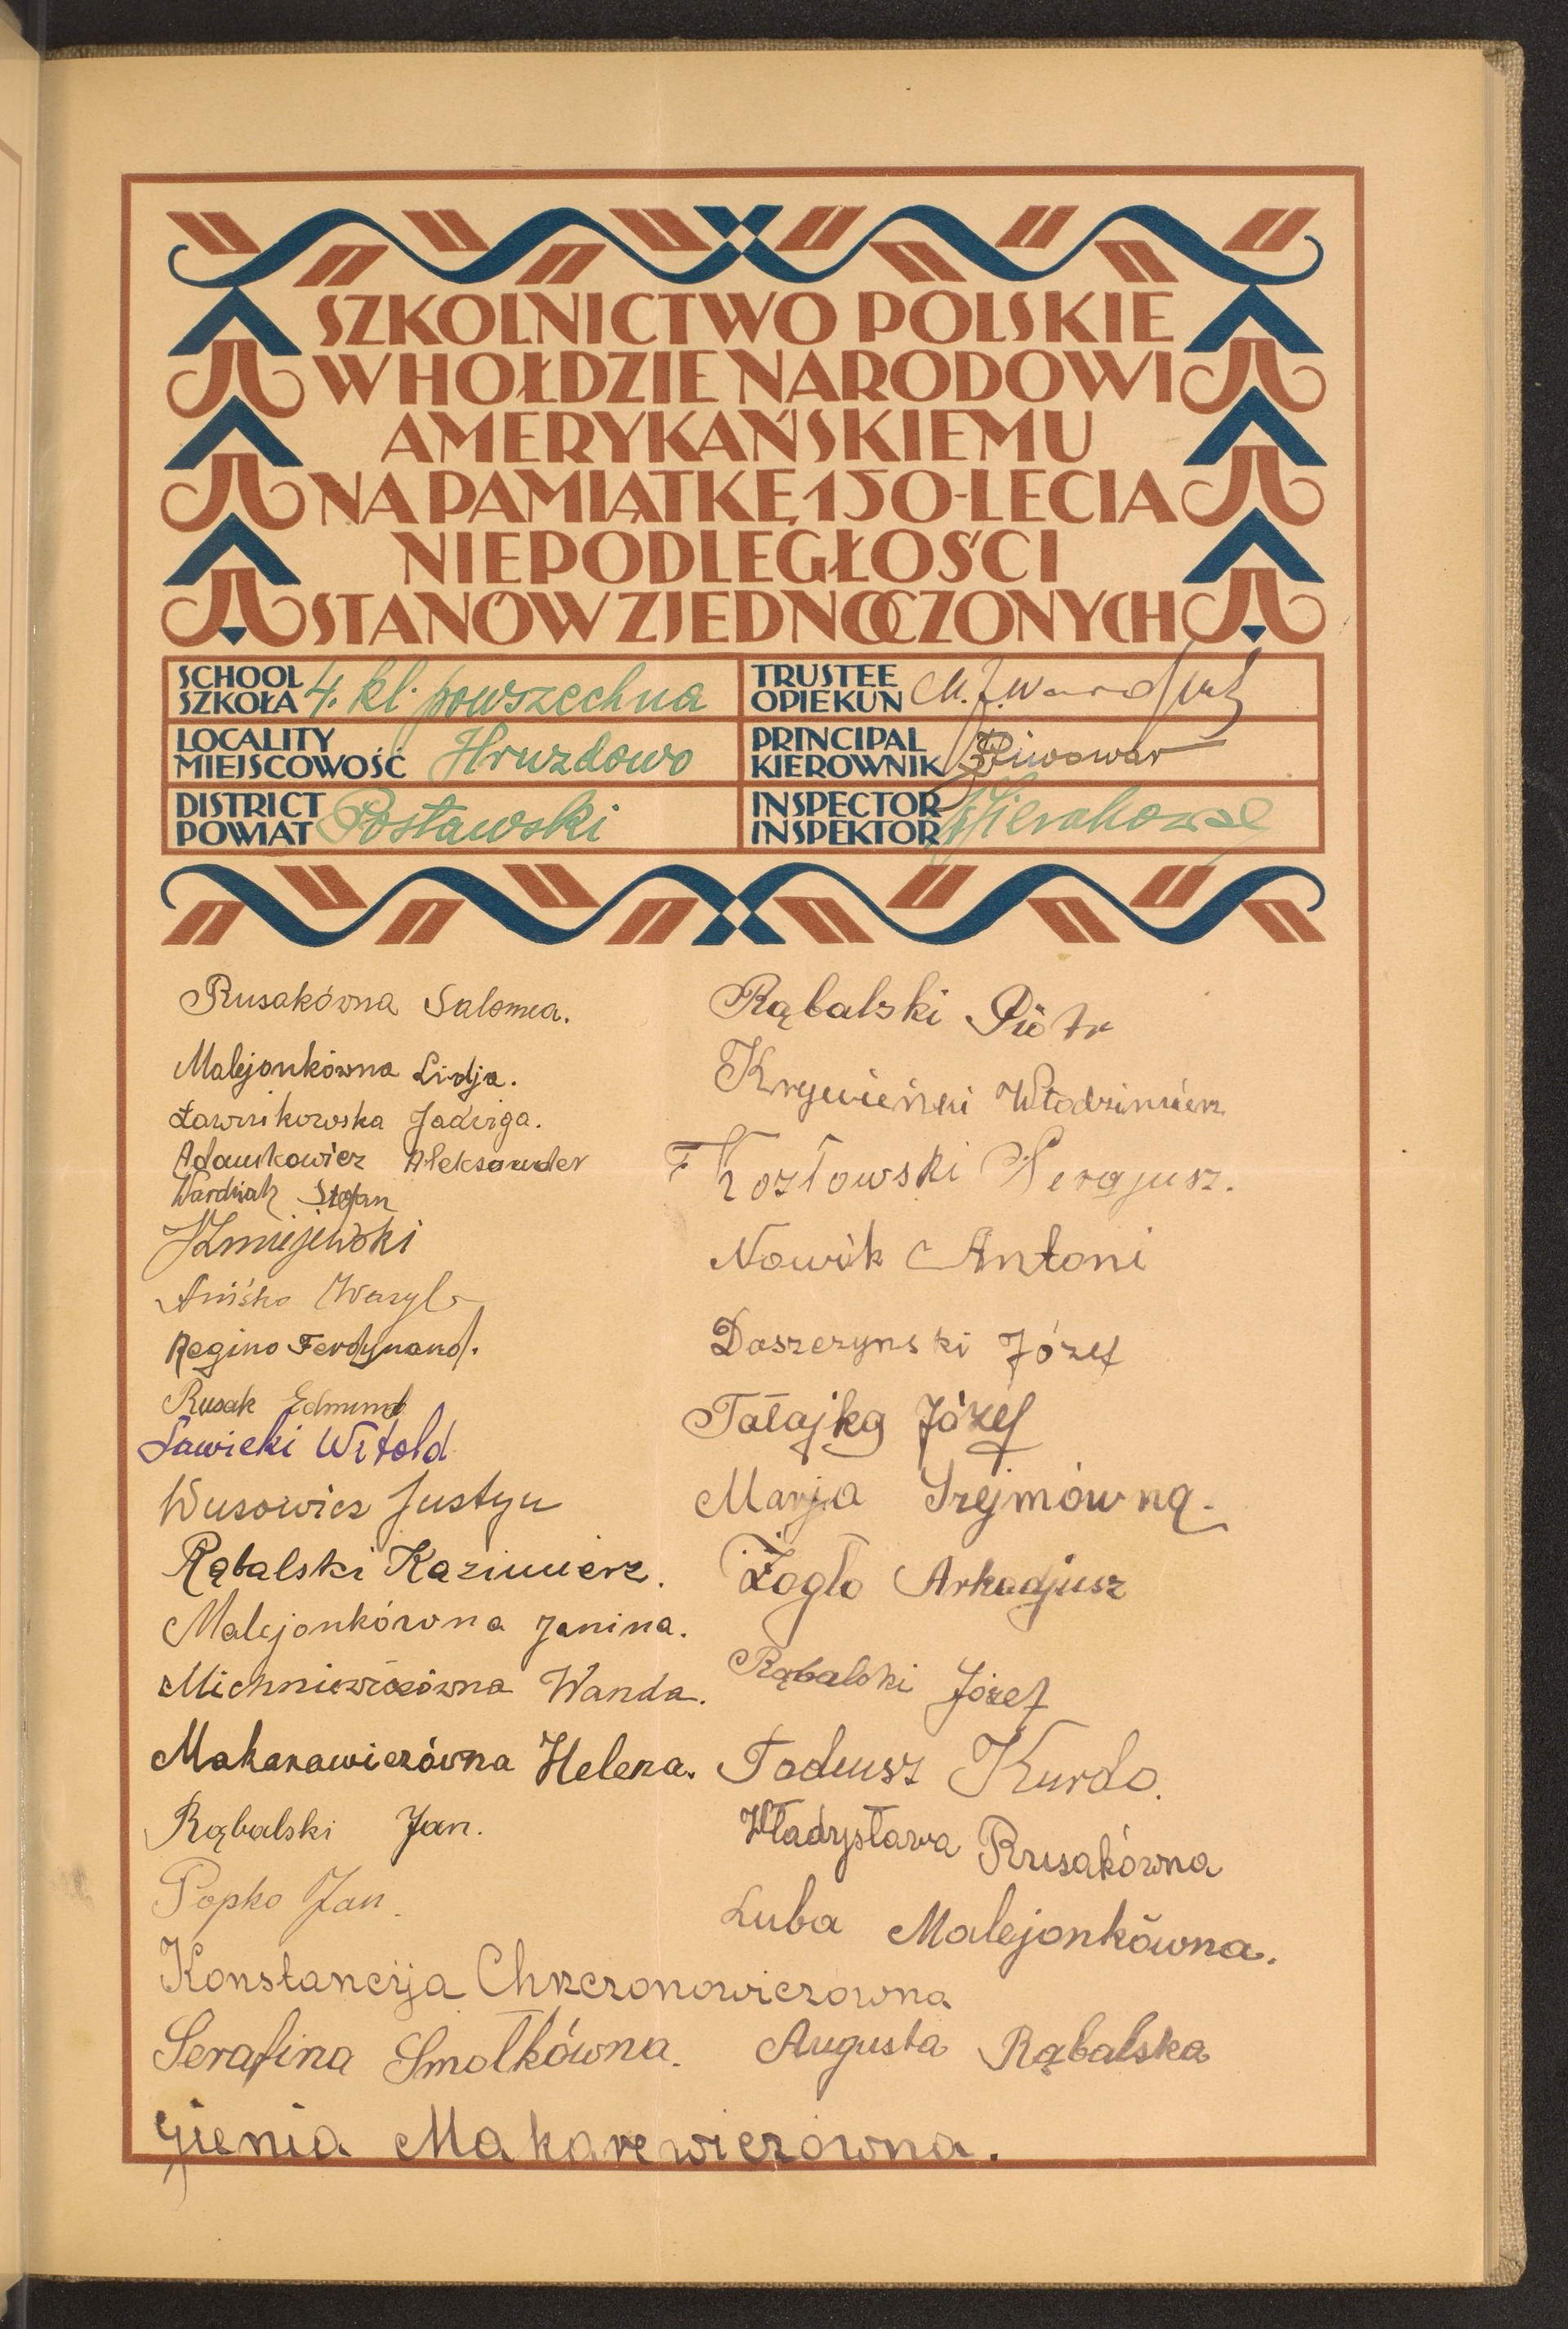 SZKOLNICTWO POLSKIE
W HOŁDZIE NARODOWI
AMERYKAŃSKIEMU
NA PAMIĄTKĘ 150-LECIA
NIEPODLEGŁOŚCI
STANÓW ZJEDNOCZONYCH
SCHOOL
SZKOŁA 4. kl. powszechna
TRUSTEE
OPIEKUN
LOCALITY
MIEJSCOWOŚĆ Hruzdowo
PRINCIPAL
KIEROWNIK Piwowar
DISTRICT
POWIAT Postawski
INSPECTOR
INSPEKTOR
Rusakówna Salomea.
Malejonkówna Lidja.
Ławrikowska Jadwiga.
Adamkowicz Aleksander
Wardziak Stefan
Żmijewski
Aniśko Wasyl
Regino Ferdynand.
Rusak Edmund
Sawicki Witold
Wusowicz Justyn
Rąbalski Kazimierz.
Malejonkówna Janina.
Michniewiczówna Wanda.
Makarawiczówna Helena.
Rąbalski Jan.
Popko Jan.
Konstancija Chrzczonowiczowna
Serafina Smołkówna.
Gienia Makarewiczowna.
Rąbalski Piotr
Włodzimierz
Kozłowski Sergjusz.
Nowik Antoni
Daszczynski Józef
Tałajka Józef
Marja Szejmówna.
Żogło Arkadjusz
Rąbalski Józef
Tadeusz Kurdo.
Władysława Rusakówna
Luba Malejonkówna.
Augusta Rąbalska